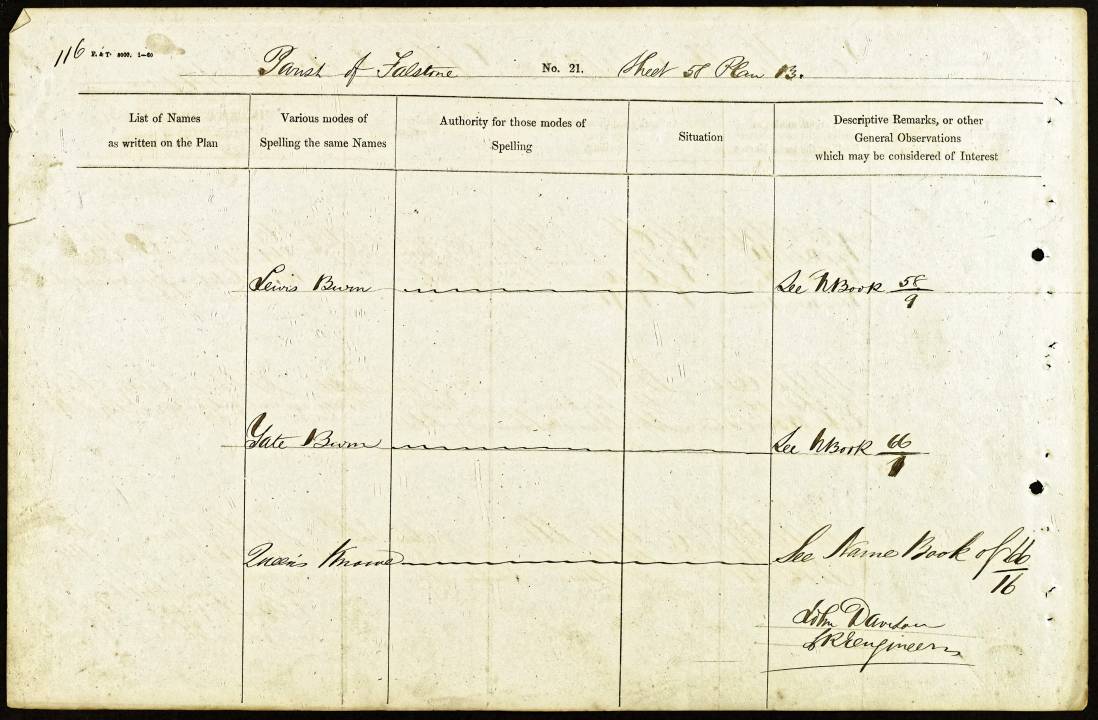 116 Parish of Falstone No. 21. Sheet 58 Plan 13.
List of Names
as written on the Plan
Various modes of
Spelling the same Names
Authority for those modes of
Spelling
Situation
Descriptive Remarks, or other
General Observations
which may be considered of Interest
Lewis Burn See NBook 58/9
Yate Burn See NBook 66/1
Queen's Knowe See Name Book of 66/16
John Davison
REngineers